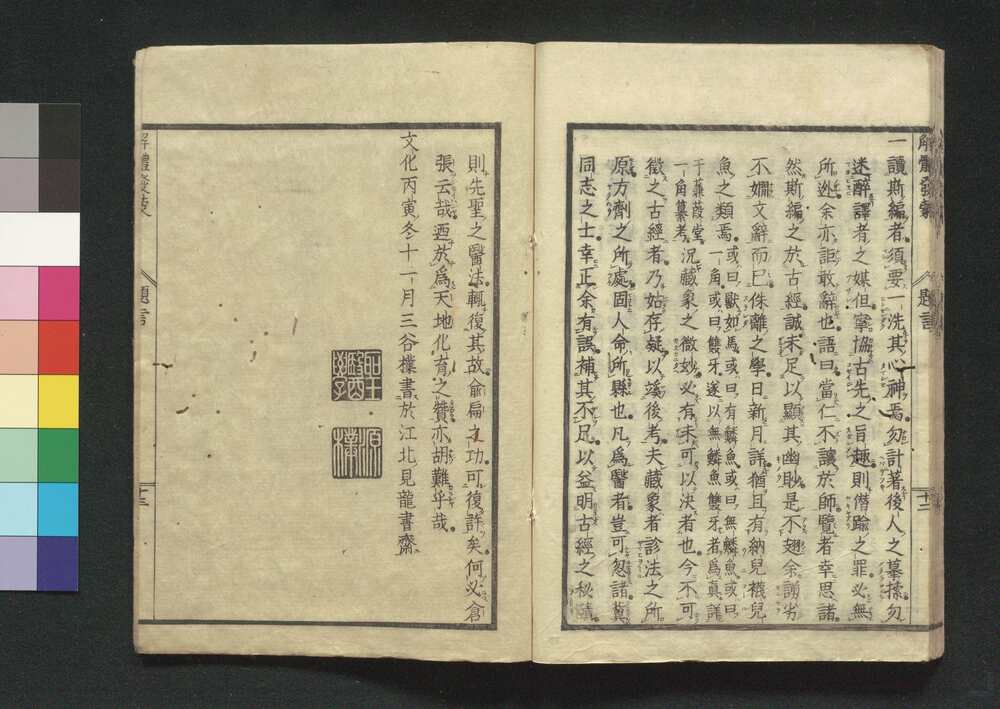 解體發蒙
題言
十二
一讀斯編者須要一洗其心神焉勿計著後人之摹揉勿
迷醉譯者之媒但寧協古先之旨趣則僭踰之罪必無
所逃余亦詎敢辭也語曰當仁不讓於師覽者幸思諸
然斯編之於古經誠未足以顯其幽眇是不翅余謭劣
不嫺文辭而已侏離之學日新月詳猶且有納兒襪兒
魚之類焉或曰獸如馬或曰有鱗魚或曰無鱗魚或曰
一角或曰雙牙遂以無鱗魚雙牙者為真詳
于蒹葭堂
一角纂考況藏象之微妙必有未可以決者也今不可
徵之古經者乃姑存疑以竢後考夫藏象者診法之所
原方劑之所處固人命所縣也凡為醫者豈可忽諸冀
同志之士幸正余有誤補其不足以益明古經之秘
則先聖之醫法輒復其故俞扁之功可復許矣何必倉
張云哉迺於為天地化育之贊亦胡難乎哉
文化丙寅冬十一月三谷樸書於江北見龍書齋
源
樸
解體發蒙
題言
十二